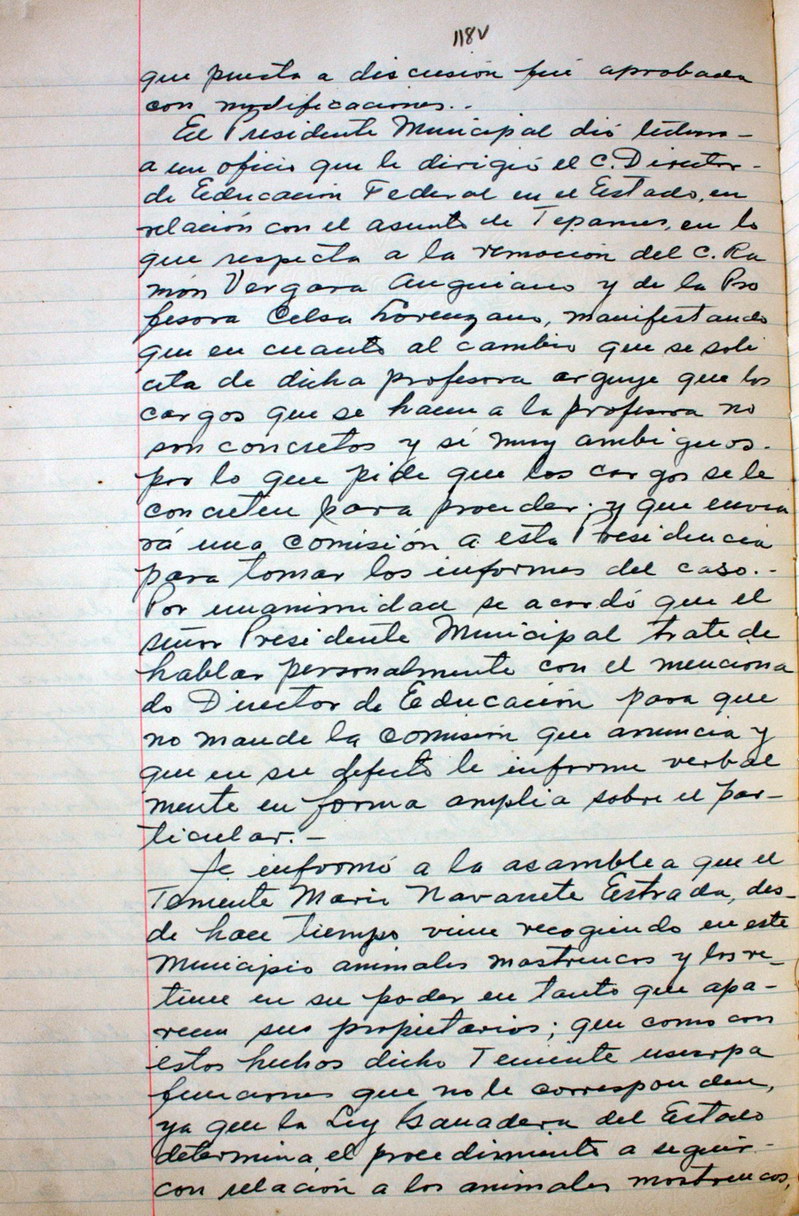 118v
que puesta a discusión fué aprobada
con modificaciones.-
El Presidente Municipal dió lectura-
a un oficio que le dirigió el C. Director-
de Educación Federal en el Estado, en
relación con el asunto de Tepames, en lo
que respecta a la remoción del C. Ra
món Vergara Anguiano y de la Pro
fesora Celsa Lorenzano, manifestando
que en cuanto al cambio que se soli
cita de dicha profesora arguye que los
cargos que se hacen a la profesora no
son concretos y sí muy ambiguos.
por lo que pide que los cargos se le
concreten para proceder; y que envia
rá una comisión a esta Presidencia
para tomar los informes del caso.-
Por unanimidad se acordó que el
señor Presidente Municipal trate de
hablar personalmente con el menciona
do Director de Educación para que
no mande la comisión que anuncia y
que en su defecto le informe verbal
mente en forma amplia sobre el par-
ticular.-
Se informó a la asamblea que el
Teniente Mario Navarrete Estrada, des-
de hace tiempo viene recogiendo en este
Municipio animales mostrencos y los re-
tiene en su poder en tanto que apa-
recen sus propietarios; que como con
estos hechos dicho Teniente usurpa
funciones que no le corresponden,
ya que la Ley Ganadera del Estado
determina el procedimiento a seguir-
con relación a los animales mostrencos,